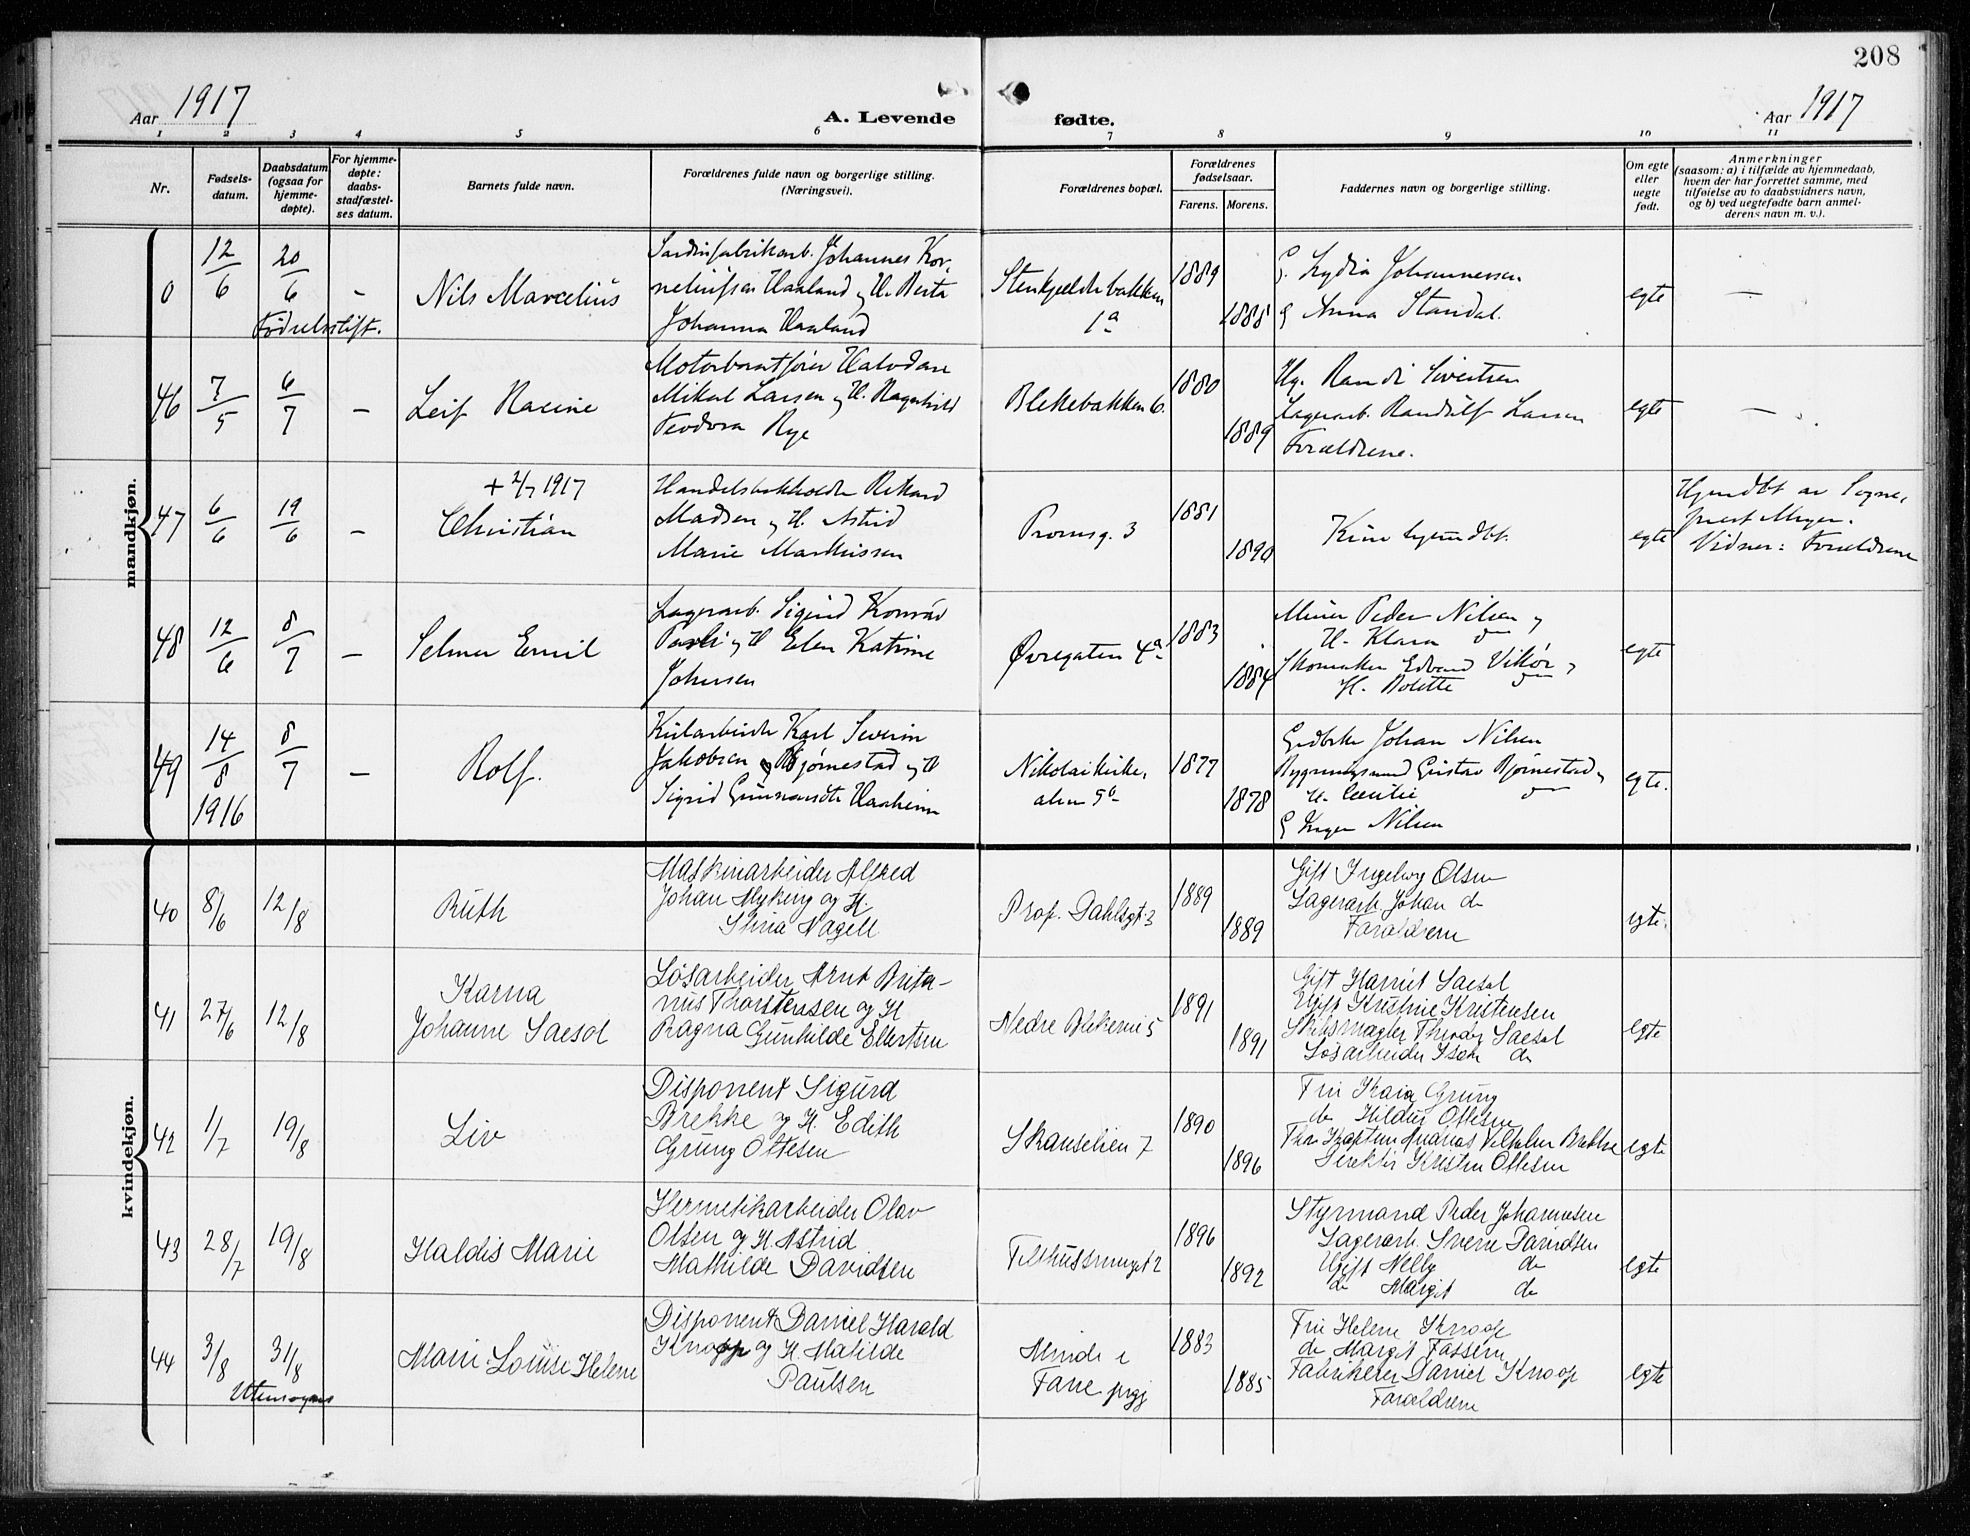 208
Aar 1917
A. Levende
fødte.
Aar 1917
1 2 3 4 5 6 7 8 9 10 11
Nr.
Fødsels-
datum.
Daabsdatum
(ogsaa for
hjemme-
døpte).
For hjemme-
døpte:
daabs-
stadfæstel-
ses datum.
Barnets fulde navn.
Forældrenes fulde navn og borgerlige stilling.
(Næringsvei).
Forældrenes bopæl.
Forældrenes
fødselsaar.
Farens. Morens.
Faddernes navn og borgerlige stilling.
Om egte
eller
uegte
født.
Anmerkninger
(saasom: a) i tilfælde av hjemmedaab,
hvem der har forrettet samme, med
tilføielse av to daabsvidners navn,
og b) ved uegtefødte barn anmel-
derens navn m. v.).
mandkjøn.
0
12/6
20/6
–
Fødselsstift.
Nils Marcelius
Sardinfabrikarb. Johannes Kor-
neliussen Haaland og H. Berta
Johanna Haaland
Stenkjeldebakken
1a
1889
1888
G. Lydia Johannessen
G Anna Standal.
egte
—
46
7/5
6/7
–
Leif Racine
Motorbaatfører Halvdan
Mikal Larsen og H. Ragnhild
Teodora Rye
Blekebakken 6.
1880
1889
Ug. Randi Sivertsen
Lagerarb. Randulf Larsen
Forældrene.
egte
—
47
6/6
19/6
–
+ 2/7 1917
Christian
Handelsbokholder Rikard
Madsen og H. Astrid
Marie Markussen
Promsg. 3
1881
1890
Kun hjemdbt.
egte
Hjemdbt av Sogne-
prest Meyer.
Vidner: Forældrene
48
12/6
8/7
–
Selmer Emil
Lagerarb. Sigurd Konrad
og H Elen Katrine
Johnsen
Øvregaten 4a
1883
1884
Murer Peder Nilsen og
H. Klara do
Skomaker Edvard Vikør og
H. Bolette do
egte
49
14/8
1916
8/7
–
Rolf.
Kularbeider Karl Severin
Jakobsen Bjørnestad og H
Sigrid Haaheim
Nikolaikirke-
alm 5b
1877
1878
Johan Nilsen
Bygningssmed Gustav Bjørnestad og
H. Cecilie do
G Inger Nilsen
egte.
kvindekjøn.
40
8/6
12/8
Ruth
Maskinarbeider Alfred
Johan Myking og H.
Stina Nagell
Prof. Dahlsgt. 3
1889
1889
Gift Ingeborg Olsen
Lagerarb. Johan do
Forældrene
egte.
41
27/6
12/8
Karna
Johanne Saesol
Løsarbeider Arnt Brita-
nus Thorstensen og H
Ragna Gunhilde Ellertsen
Nedre Blekevei 5
1891
1891
Gift Harriet Saesol
Ugift Kristine Kristensen
Skibsmægler Theodor Saesol
Løsarbeider Isak do
egte
42
1/7
19/8
Liv
Disponent Sigurd
Brekke og H. Edith
Grung Ottesen
Skanselien 7
1890
1896
Fru Kaia Grung
do Hildur Ottesen
Kaptein Andreas Brekke
Direktør Kristen Ottesen
egte
43
28/7
19/8
Haldis Marie
Hermetikarbeider Olav
Olsen og H. Astrid
Mathilde Davidsen
Tolthussmuget 2
1896
1892
Styrmand Peder Johannesen
Lagerarb. Sverre Davidsen
Ugift Nelly do
do Margit do
egte
44
3/8
31/8
Utensogns
Marie Louise Helene
Disponent Daniel Harald
Knoop og H. Matilde
Paulsen
Minde i
Fane prgj
1883
1885
Fru Helene Knoop
do Margit Fassem
Fabrikeier Daniel Knoop
Forældrene
egte